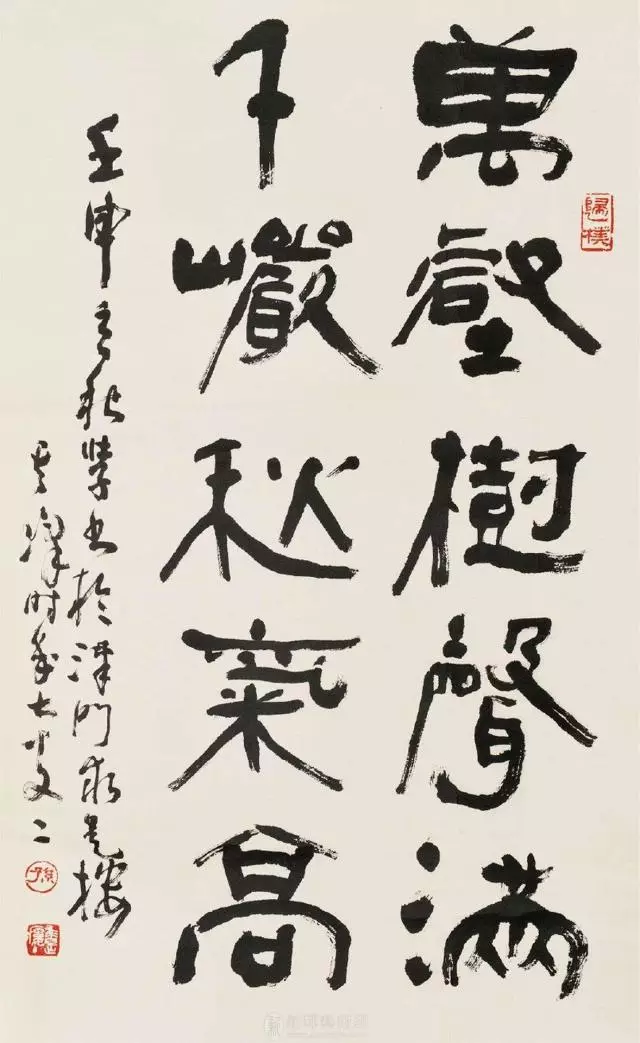 萬壑樹聲滿
千巖秋氣高
壬申秋書於津門求是樓
其峯時年七十又二
歸樸
孫